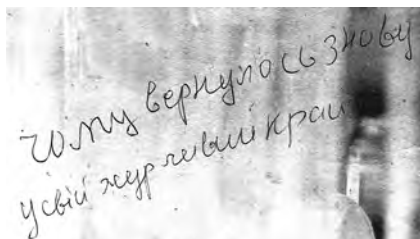 чому вернулось знову
у свій журливий край